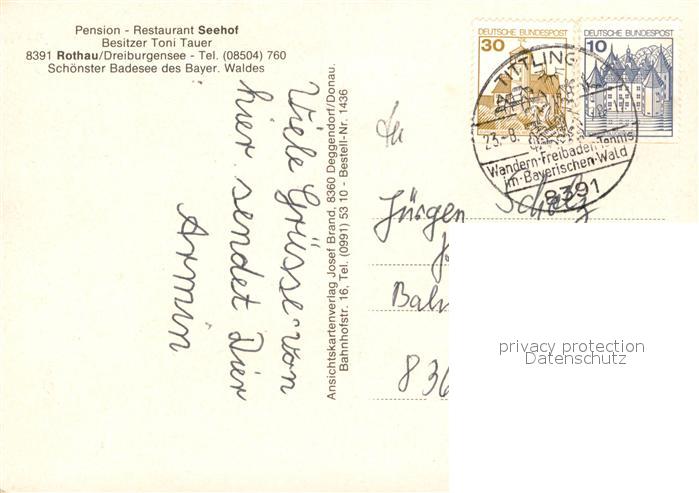 Pension - Restaurant Seehof
Besitzer Toni Tauer
8391 Rothau/Dreiburgensee - Tel. (08504) 760
Schönster Badesee des Bayer. Waldes
Viele Grüsse von
hier sendet Dier
Armin
Ansichtskartenverlag Josef Brand, 8360 Deggendorf/Donau.
Bahnhofstr. 16, Tel. (0991) 53 10 - Bestell-Nr. 1436
DEUTSCHE BUNDESPOST
30
DEUTSCHE BUNDESPOST
10
TITTLING
23.-8.
Wandern-Freibaden-Tennis
im-Bayerischen-Wald
8391
An
Jürgen
Bah
836
privacy protection
Datenschutz